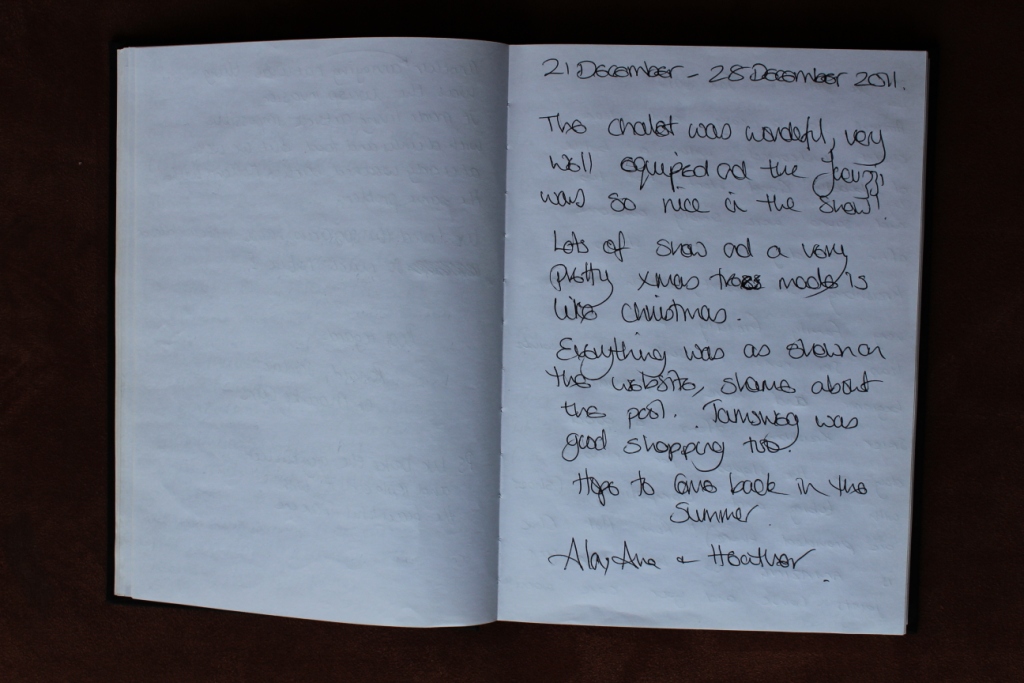 21 December - 28 December 2011.
The chalet was wonderful, very
well equiped and the Jacuzzi
was so nice in the snow!
Lots of snow and a very
pretty xmas tree made is
like christmas.
Everything was as shown on
the website, shame about
the pool. Tamsweg was
good shopping too.
Hope to come back in the
Summer.
Alan, Anne & Heather